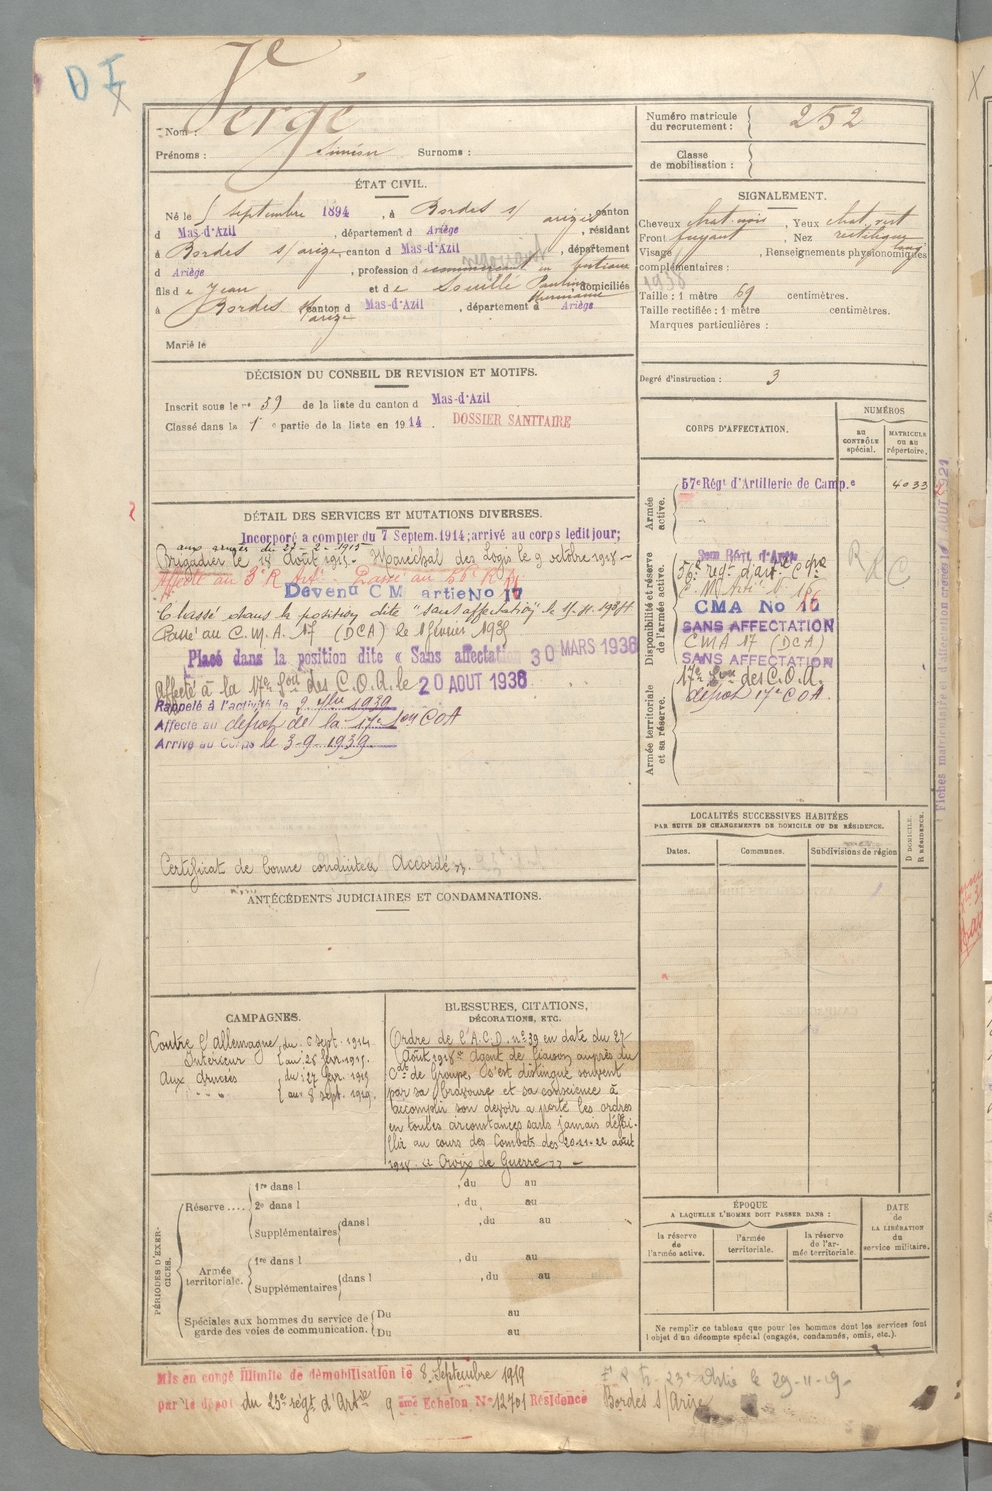 D I
Nom : Vergé
Prénoms : Siméon Surnoms :
Numéro matricule du recrutement : 252
Classe de mobilisation :
ÉTAT CIVIL.
Né le 5 Septembre 1894, à Bordes s/ arize canton
d Mas-d'Azil, département d Ariège, résidant
à Bordes s/ arize, canton d Mas-d'Azil, département
d Ariège, profession d
fils de Jean et de Souillé Pauline domiciliés
à Bordes s/ arize canton d Mas-d'Azil, département d Ariège
Marié le
SIGNALEMENT.
Cheveux chat. noir, Yeux chat. vert
Front fuyant, Nez rectiligne
Visage long, Renseignements physionomiques
complémentaires :
1938
Taille : 1 mètre 69 centimètres.
Taille rectifiée : 1 mètre centimètres.
Marques particulières :
Degré d'instruction : 3
DÉCISION DU CONSEIL DE REVISION ET MOTIFS.
Inscrit sous le n° 59 de la liste du canton d Mas-d'Azil
Classé dans la 1e partie de la liste en 1914. DOSSIER SANITAIRE
DÉTAIL DES SERVICES ET MUTATIONS DIVERSES.
Incorporé a compter du 7 Septem. 1914; arrivé au corps ledit jour;
aux armées du 27-2-1915
Brigadier le 18 Août 1915. Maréchal des Logis le 9 octobre 1918
Affecté au 3e R. Art. Passé au 56e R
Devenu C M artie No 17
Classé dans la position dite "sans affectation" le
Passé au C.M.A. 17 (DCA) le 1 février
Placé dans la position dite « Sans affectation 30 MARS 1938
Affecté à la 17e Son des C.O.A. le 20 AOUT 1938
Rappelé à l'activité le 2 1939
Affecté au dépôt de la 17e Son COA
Arrivé au Corps le 3-9-1939
Certificat de bonne conduite Accordé
CORPS D'AFFECTATION.
NUMÉROS
au CONTRÔLE spécial.
MATRICULE ou au répertoire.
Armée active.
57e Régt d'Artillerie de Camp.e 4033
Disponibilité et réserve de l'armée active.
56e regt d'art. Cgne
CMA No 16
SANS AFFECTATION
CMA 17 (DCA)
SANS AFFECTATION
17e Son des C.O.A.
dépôt 17e COA.
R R C
Armée territoriale et sa réserve.
LOCALITÉS SUCCESSIVES HABITÉES
PAR SUITE DE CHANGEMENTS DE DOMICILE OU DE RÉSIDENCE.
Dates. Communes. Subdivisions de région
D DOMICILE. R RÉSIDENCE.
ANTÉCÉDENTS JUDICIAIRES ET CONDAMNATIONS.
CAMPAGNES.
Contre l'Allemagne du 6 Sept. 1914
Intérieur au 26 févr. 1915.
Aux Armées du 27 févr. 1915
au 8 sept. 1919.
BLESSURES, CITATIONS, DÉCORATIONS, ETC.
Ordre de l'A.C.D. n° 39 en date du 27
Août 1918 "Agent de liaison auprès du
Ct de Groupe, s'est distingué souvent
par sa bravoure et sa conscience à
accomplir son devoir a porté les ordres
en toutes circonstances sans jamais défai-
llir au cours des Combats des 20-21-22 août
1918. "Croix de Guerre"
PÉRIODES D'EXERCICES.
Réserve .... 1re dans l , du au
2e dans l , du au
Supplémentaires dans l , du au
Armée territoriale. 1re dans l , du au
Supplémentaires dans l , du au
Spéciales aux hommes du service de garde des voies de communication. Du au
Du au
ÉPOQUE
A LAQUELLE L'HOMME DOIT PASSER DANS :
la réserve de l'armée active.
l'armée territoriale.
la réserve de l'armée territoriale.
DATE de LA LIBÉRATION du service militaire.
Ne remplir ce tableau que pour les hommes dont les services font l'objet d'un décompte spécial (engagés, condamnés, omis, etc.).
Mis en congé illimité de démobilisation le 8 Septembre 1919
par le dépôt du 23e régt d'Artie 9 ème Echelon, No 12701 Résidence Bordes s/Arize
23e le 29-11-19